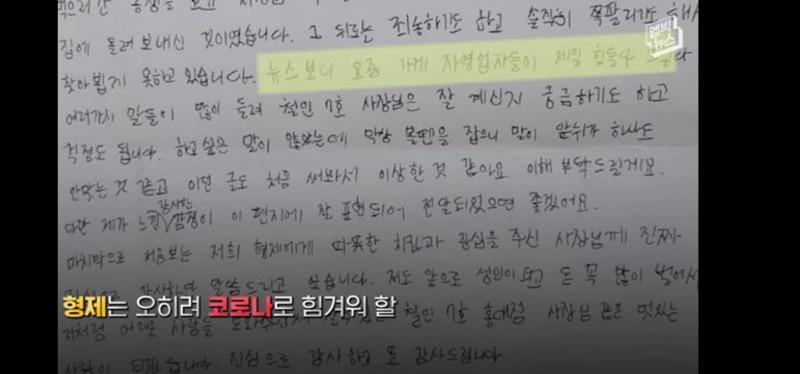 집에 돌려 보내신 것이였습니다. 그 뒤로는 죄송하기도 하고 솔직히 쪽팔리기도 해서
엠빅뉴스
찾아뵙지 못하고 있습니다. 뉴스 보니 요즘 가게 자영업자들이 제일 힘들다
여러가지 말들이 많이 들려 철인 7호 사장님은 잘 계신지 궁금하기도 하고
걱정도 됩니다. 하고 싶은 말이 많았는데 막상 볼펜을 잡으니 말이 앞뒤가 하나도
안맞는 것 같고 이런 글도 처음 써봐서 이상한 것 같아요 이해 부탁드릴게요.
다만 제가 느낀 감사한 감정이 이 편지에 잘 표현되어 전달되었으면 좋겠어요.
마지막으로 처음보는 저희 형제에게 따뜻한 치킨과 관심을 주신 사장님께 진짜
감사하단 말씀드리고 싶습니다. 저도 앞으로 성인이 되고 돈 꼭 많이 벌어서
형제는 오히려 코로나로 힘겨워 할
저처럼 어려운 사람을 철인 7호 홍대점 사장님 같은 멋있는
사람이 되겠습니다. 진심으로 감사하고 또 감사드립니다.